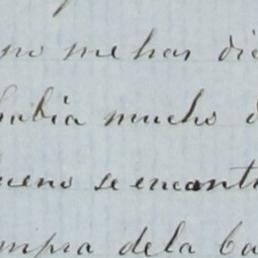 no me has di
habia mucho
ueno se encont
mpra dela Ca